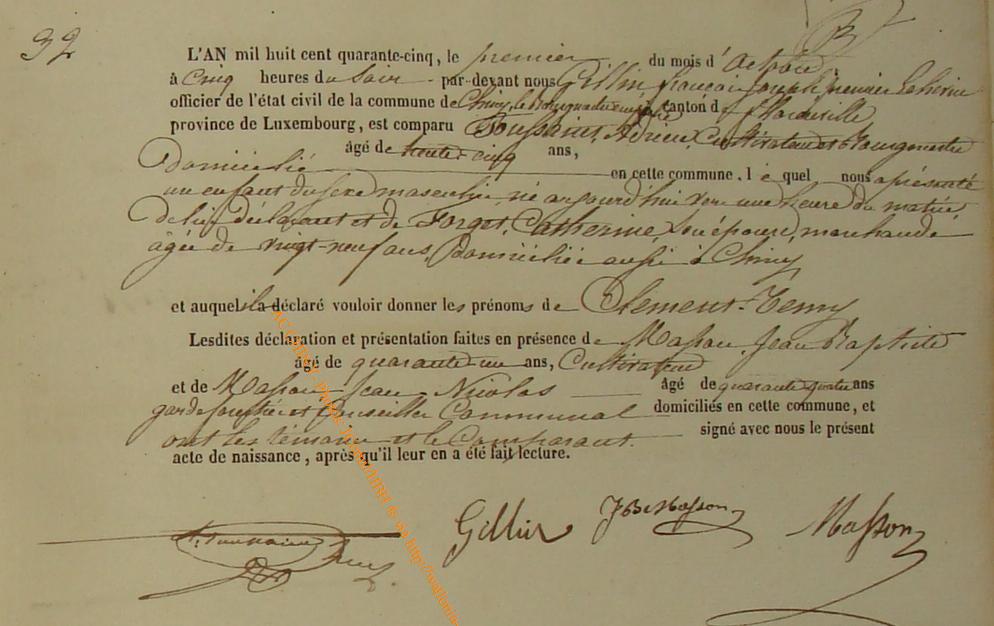 32
L'AN mil huit cent quarante-cinq, le premier du mois d'Octobre
à cinq heures du soir par-devant nous Gillin François Joseph premier Echevin
officier de l'état civil de la commune de Chiny, le Bourgmestre empêché canton de Florenville
province de Luxembourg, est comparu Toussaint, Adrien Cultivateur et Bourgmestre
âgé de trente-cinq ans,
Domicilié en cette commune, lequel nous a présenté
un enfant du sexe masculin, né aujourd'hui vers une heure du matin,
de lui déclarant et de Forget, Catherine, son épouse, marchande
âgée de vingt-neuf ans, Domiciliée aussi à Chiny
et auquel il a déclaré vouloir donner les prénoms de Clement-Remy
Lesdites déclaration et présentation faites en présence de Masson Jean Baptiste
âgé de quarante un ans, Cultivateur
et de Masson Jean Nicolas âgé de quarante quatre ans
garde forestier et Conseiller Communal domiciliés en cette commune, et
ont les témoins et le Comparant signé avec nous le présent
acte de naissance, après qu'il leur en a été fait lecture.
Gillin JBte Masson Masson